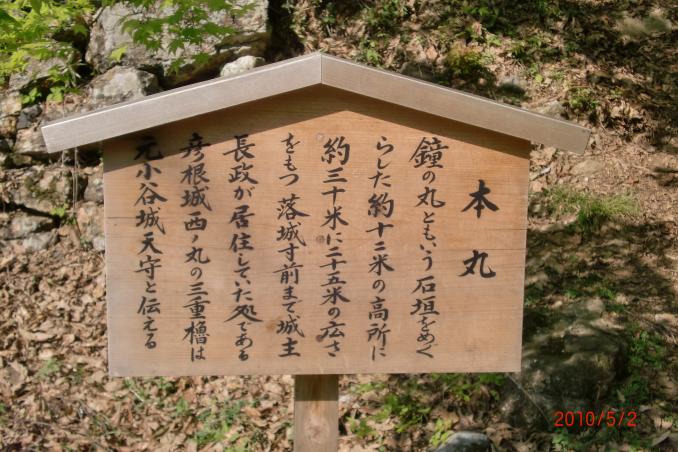 本丸
鐘の丸ともいう石垣をめぐ
らした約十二米の高所に
約三十米に二十五米の広さ
をもつ落城寸前まで城主
長政が居住していた処である
彦根城西ノ丸の三重櫓は
元小谷城天守と伝える
2010/5/2